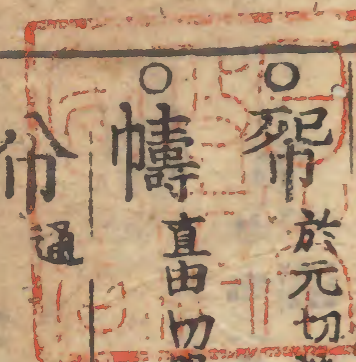 ○
於元切
○幬
直由切
通